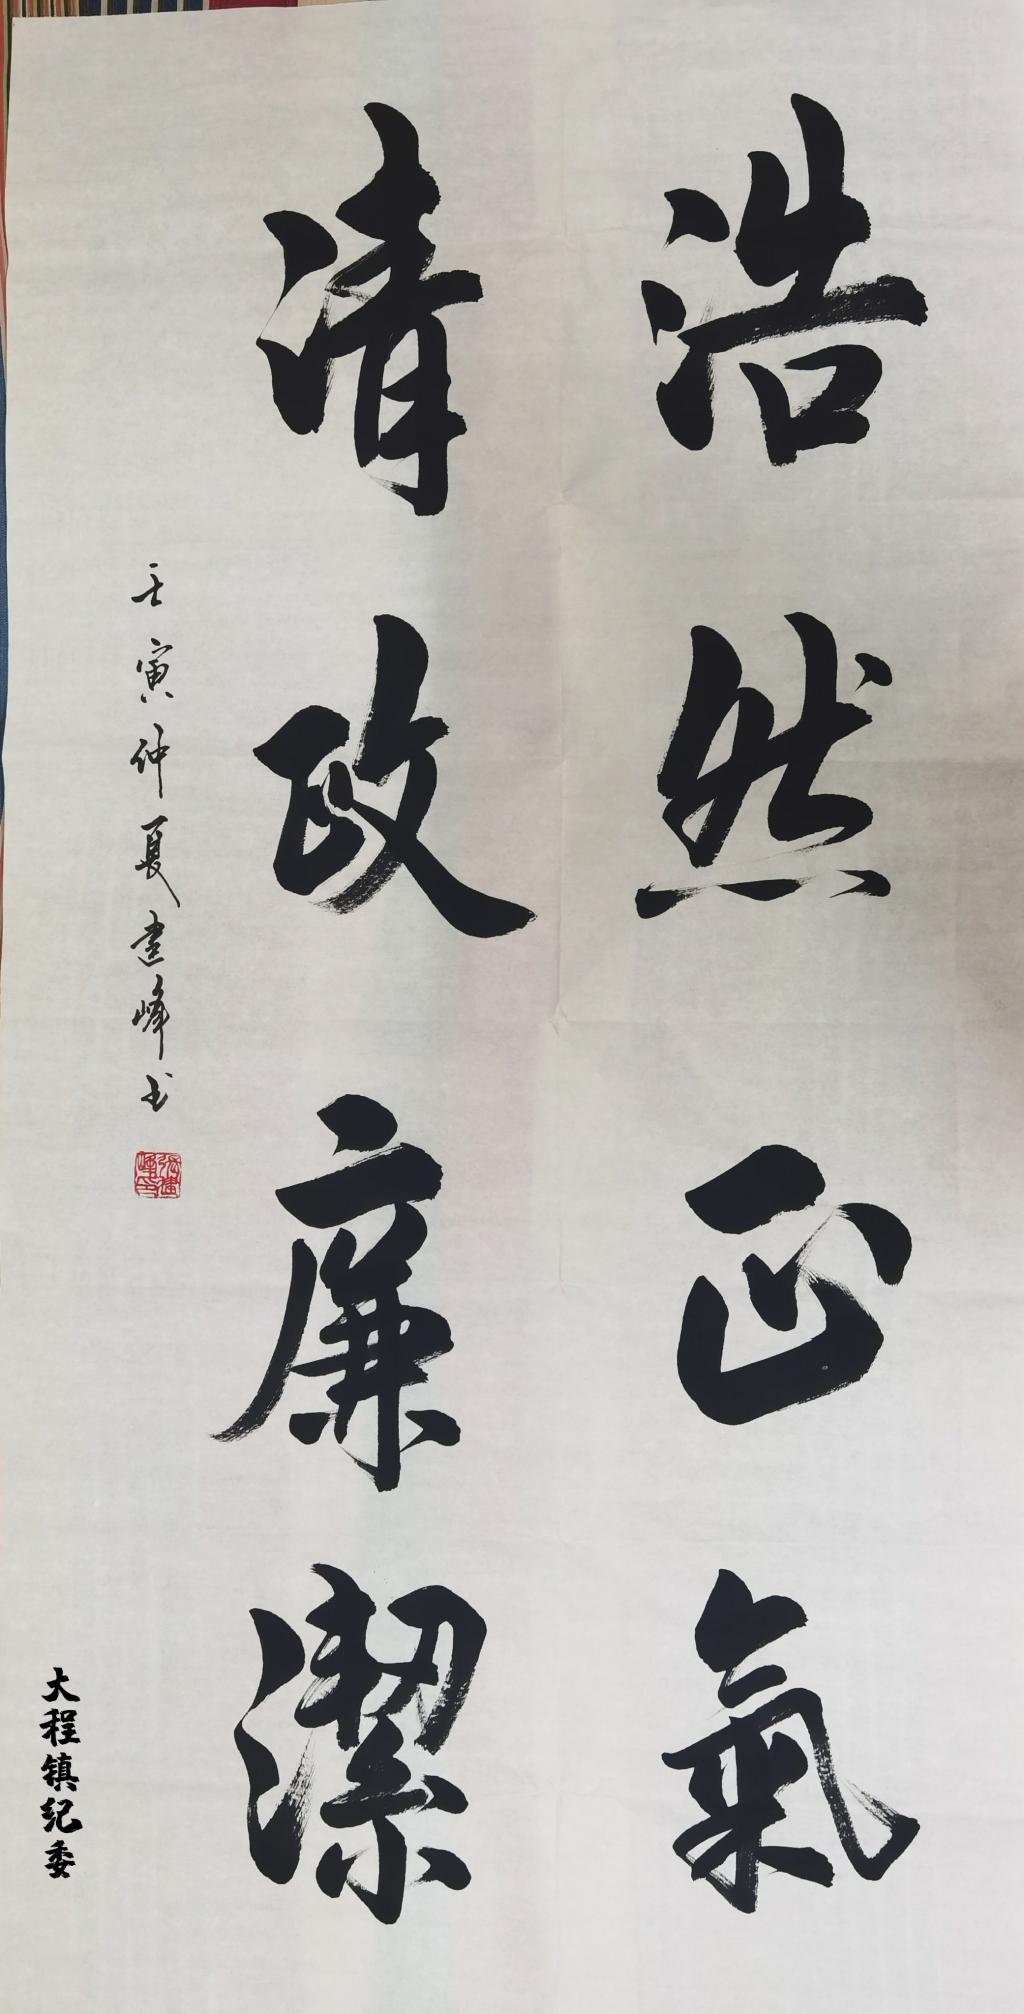 浩然正氣
清政廉潔
壬寅仲夏建峰书
張建峰印
大程镇纪委